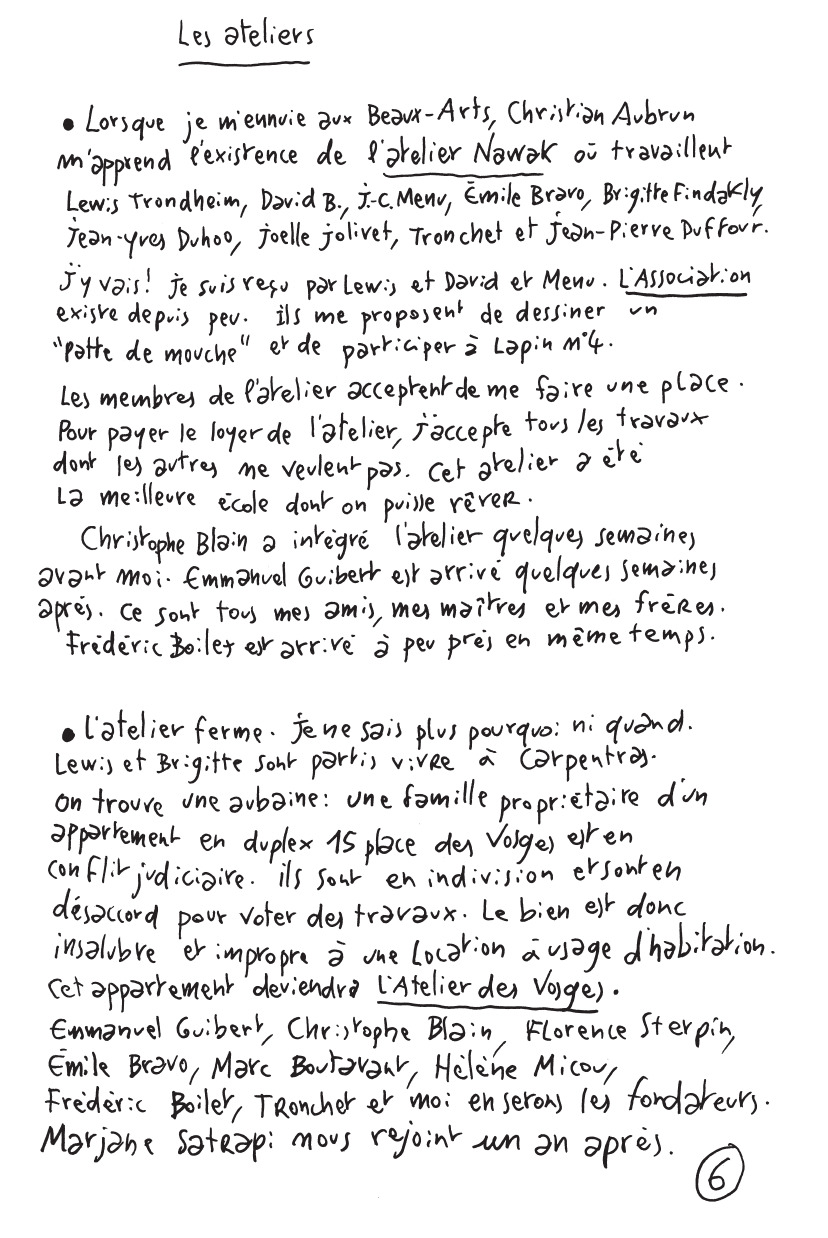 Les ateliers
• Lorsque je m'ennuie aux Beaux-Arts, Christian Aubrun
m'apprend l'existence de l'atelier Nawak où travaillent
Lewis Trondheim, David B., J.-C. Menu, Émile Bravo, Brigitte Findakly,
Jean-Yves Duhoo, Joelle Jolivet, Tronchet et Jean-Pierre Duffour.
J'y vais! Je suis reçu par Lewis et David et Menu. L'Association
existe depuis peu. Ils me proposent de dessiner un
"Patte de mouche" et de participer à Lapin n°4.
Les membres de l'atelier acceptent de me faire une place.
Pour payer le loyer de l'atelier, j'accepte tous les travaux
dont les autres ne veulent pas. Cet atelier a été
La meilleure école dont on puisse rêver.
Christophe Blain a intégré l'atelier quelques semaines
avant moi. Emmanuel Guibert est arrivé quelques semaines
après. Ce sont tous mes amis, mes maîtres et mes frères.
Frédéric Boilet est arrivé à peu près en même temps.
• L'atelier ferme. Je ne sais plus pourquoi ni quand.
Lewis et Brigitte sont partis vivre à Carpentras.
On trouve une aubaine: une famille propriétaire d'un
appartement en duplex 15 place des Vosges est en
conflit judiciaire. Ils sont en indivision et sont en
désaccord pour voter des travaux. Le bien est donc
insalubre et impropre à une Location à usage d'habitation.
Cet appartement deviendra L'Atelier des Vosges.
Emmanuel Guibert, Christophe Blain, Florence Sterpin,
Émile Bravo, Marc Boutavant, Hélène Micou,
Frédéric Boilet, Tronchet et moi en serons les fondateurs.
Marjane Satrapi nous rejoint un an après.
6